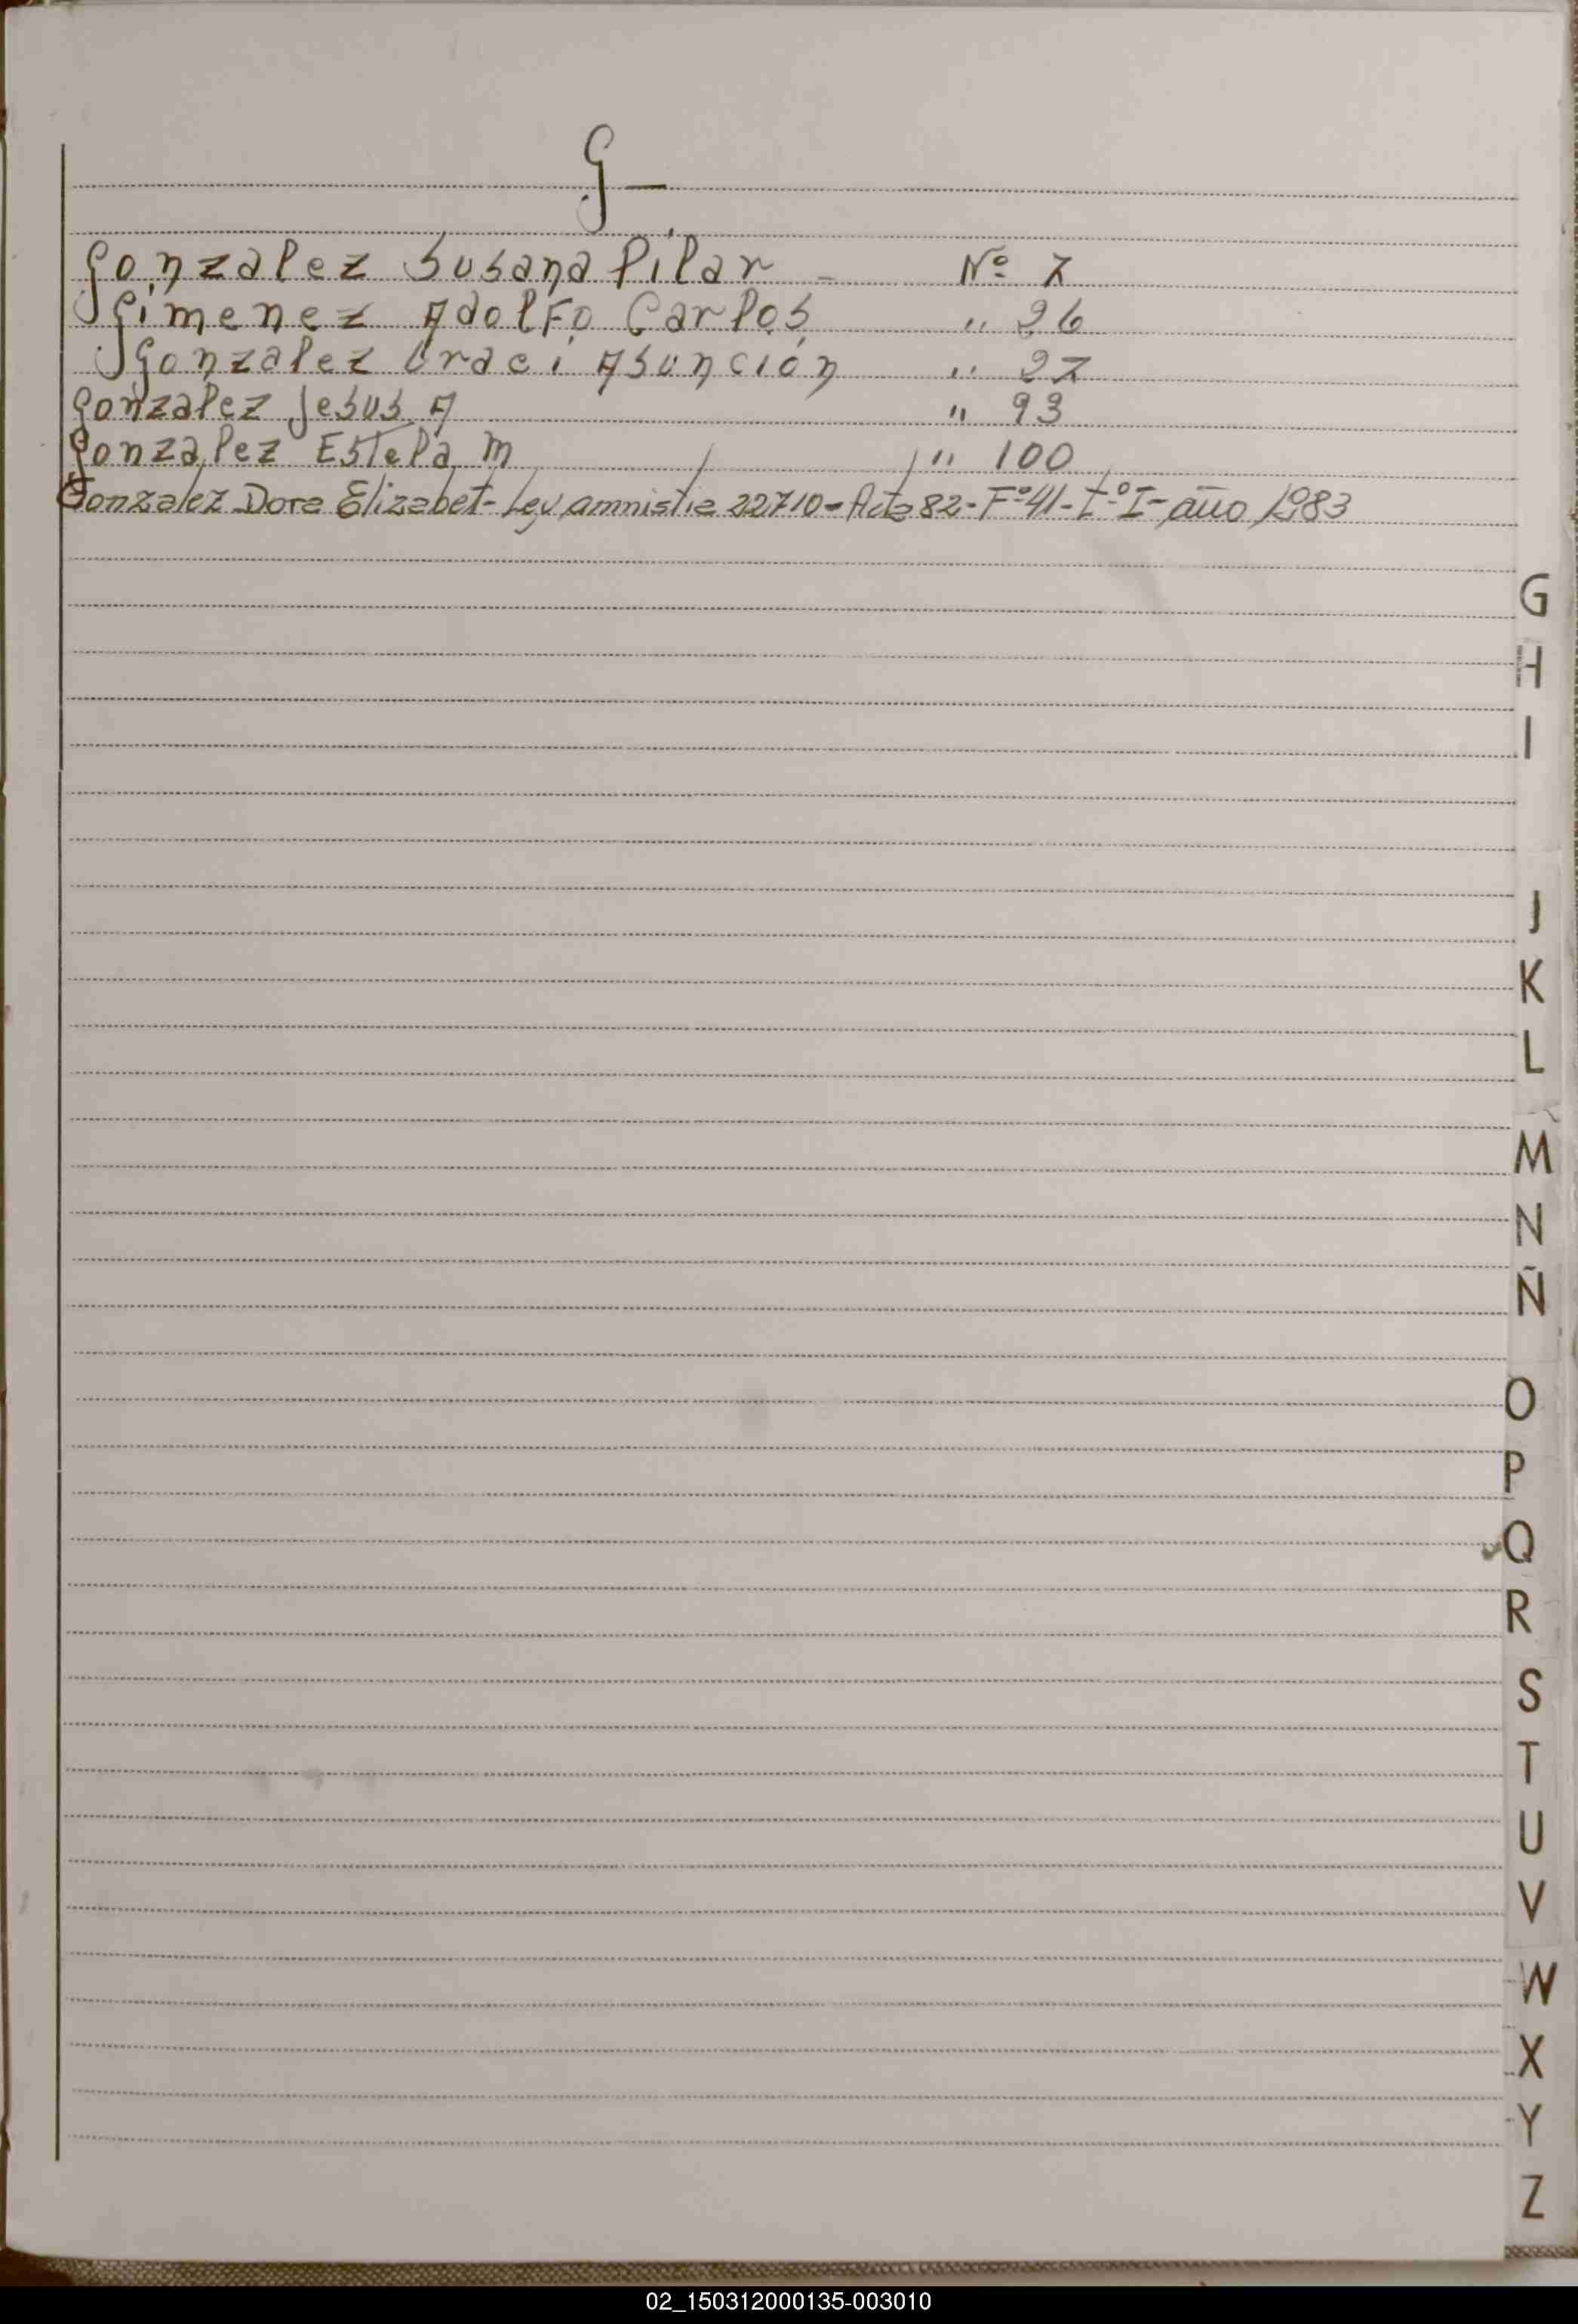 G-
Gonzalez Susana Pilar - Nº 7
Gimenez Adolfo Carlos " 26
Gonzalez Eraci Asunción " 27
Gonzalez Jesus A " 93
Gonzalez Estela M " 100
Gonzalez Dora Elizabet - Ley amnistia 22710 - Acta 82 - Fº 41 - Tº I - año 1983
G
H
I
J
K
L
M
N
Ñ
O
P
Q
R
S
T
U
V
W
X
Y
Z
02_150312000135-003010